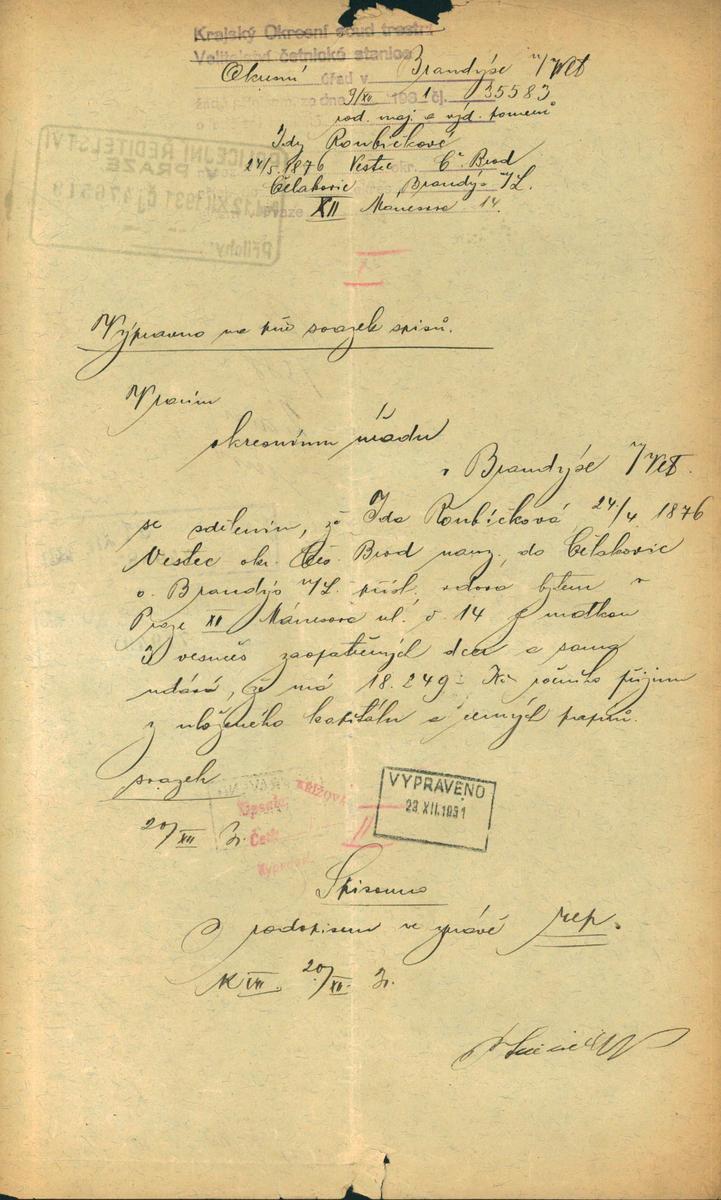 Krajský Okresní soud trestní
Velitelství četnické stanice
Okresní úřad v Brandýse n/Lab
ze dne 9/XII 1931 čj. 35583
rod. maj. a výd. poměrů
Idy Roubíčkové
24/5. 1876 Vestec okr. Č. Brod
Čelakovic Brandýs n/L.
XII Mánesova 14
POLICEJNÍ ŘEDITELSTVÍ
V PRAZE
12.XII.1931
Přílohy
I
Vypraveno na při svazek spisů.
Vracím
okresnímu úřadu
v Brandýse n/Lab.
se sdělením, že Ida Roubíčková 24/4. 1876
Vestec okr. Čes. Brod nar., do Čelakovic
o. Brandýs n/L. přísl. vdova bytem v
Praze XII Mánesova ul. č. 14 je matkou
3 vesměs zaopatřených dcer a sama
udává, že má 18.249 Kč ročního příjmu
z uloženého kapitálu a cenných papírů.
svazek
20/XII 31.
VYPRAVENO
23 XII. 1931
II
Spisovna
S podpisem ve zprávě rep.
K VII. 20/XII. 31.